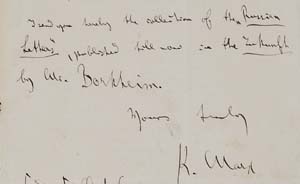 I send you hereby the collection of the Russian
Letters, published till now in the Zukunft
by Mr. Borkheim.
Yours truly
K. Marx